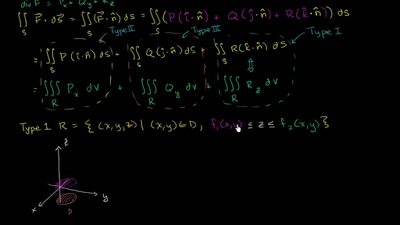 div F⃗ = Pₓ + Q_y + R_z
∬_S F⃗ · dS⃗ = ∬_S (F⃗ · n̂) dS = ∬_S (P(î·n̂) + Q(ĵ·n̂) + R(k̂·n̂)) dS
Type II Type III Type I
= ∬_S P(î·n̂) dS + ∬_S Q(ĵ·n̂) dS + ∬_S R(k̂·n̂) dS
⇕
= ∭_R Pₓ dv + ∭_R Q_y dv + ∭_R R_z dv
Type 1 R = {(x,y,z) | (x,y) ∈ D, f₁(x,y) ≤ z ≤ f₂(x,y)}
z
x y
D